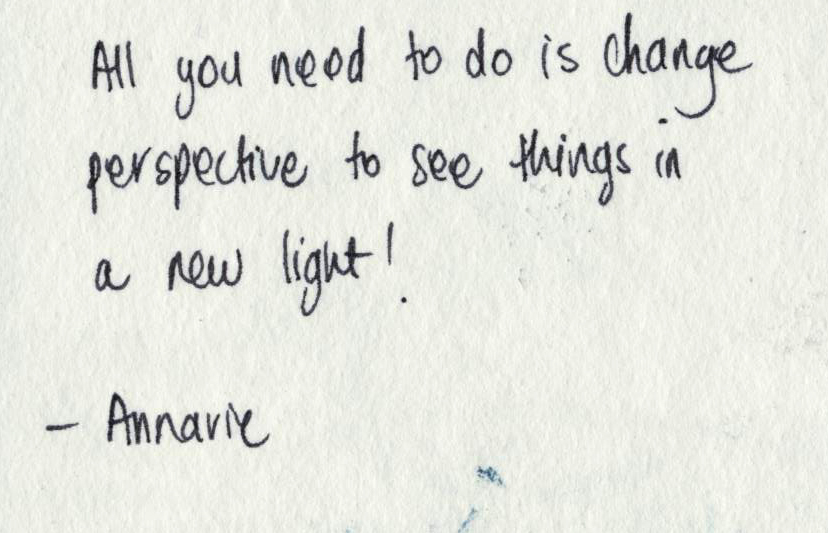 All you need to do is change
perspective to see things in
a new light!
- Annarie